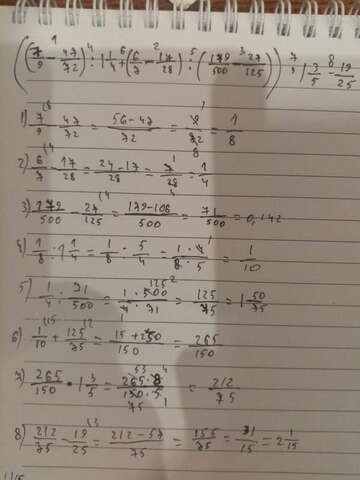 ((7/9 - 47/72) : 1 1/4 + (6/7 - 17/28) : (179/500 - 27/125)) · 1 3/5 - 19/25
1) 7/9 - 47/72 = 56-47/72 = 9/72 = 1/8
2) 6/7 - 17/28 = 24-17/28 = 7/28 = 1/4
3) 179/500 - 27/125 = 179-108/500 = 71/500 = 0,142
4) 1/8 : 1 1/4 = 1/8 · 5/4 = 1·4/8·5 = 1/10
5) 1/4 : 71/500 = 1·500/4·71 = 125/75 = 1 50/75
6) 1/10 + 125/75 = 15+250/150 = 265/150
7) 265/150 · 1 3/5 = 265·8/150·5 = 212/75
8) 212/75 - 19/25 = 212-57/75 = 155/75 = 31/15 = 2 1/15